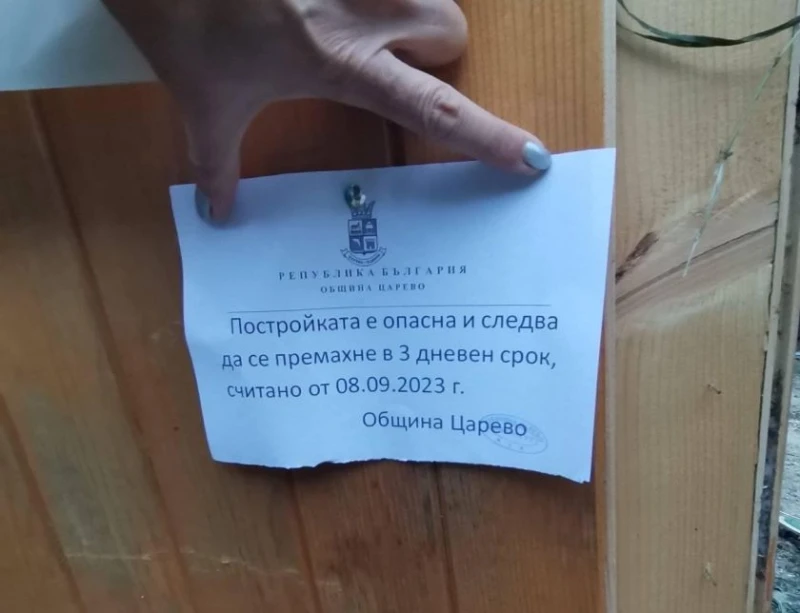 РЕПУБЛИКА БЪЛГАРИЯ
ОБЩИНА ЦАРЕВО
Постройката е опасна и следва
да се премахне в 3 дневен срок,
считано от 08.09.2023 г.
Община Царево